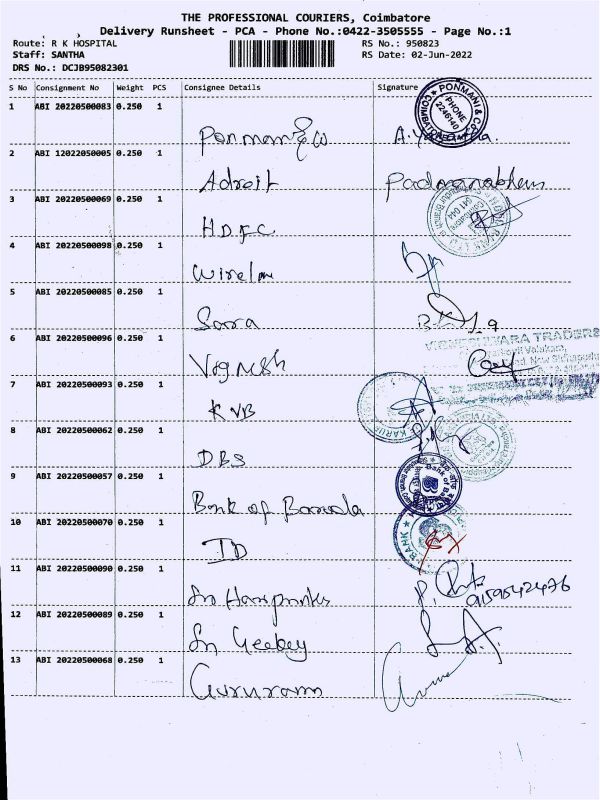 THE PROFESSIONAL COURIERS, Coimbatore
Delivery Runsheet - PCA - Phone No.:0422-3505555 - Page No.:1
Route: R K HOSPITAL RS No.: 950823
Staff: SANTHA RS Date: 02-Jun-2022
DRS No.: DCJB95082301
S No Consignment No Weight PCS Consignee Details Signature
1 ABI 20220500083 0.250 1
PONMANI & CO
COIMBATORE
PHONE
2246140
2 ABI 12022050005 0.250 1
Adroit Padmanabhan
3 ABI 20220500069 0.250 1
HDFC
4 ABI 20220500098 0.250 1
5 ABI 20220500085 0.250 1
6 ABI 20220500096 0.250 1
Vignesh
VIGNESHWARA TRADERS
7 ABI 20220500093 0.250 1
KVB
8 ABI 20220500062 0.250 1
DBS
9 ABI 20220500057 0.250 1
Bank of Baroda
Bank of
10 ABI 20220500070 0.250 1
BANK
11 ABI 20220500090 0.250 1
Sri Hariprintes
9159542476
12 ABI 20220500089 0.250 1
Sri
13 ABI 20220500068 0.250 1
Gururam